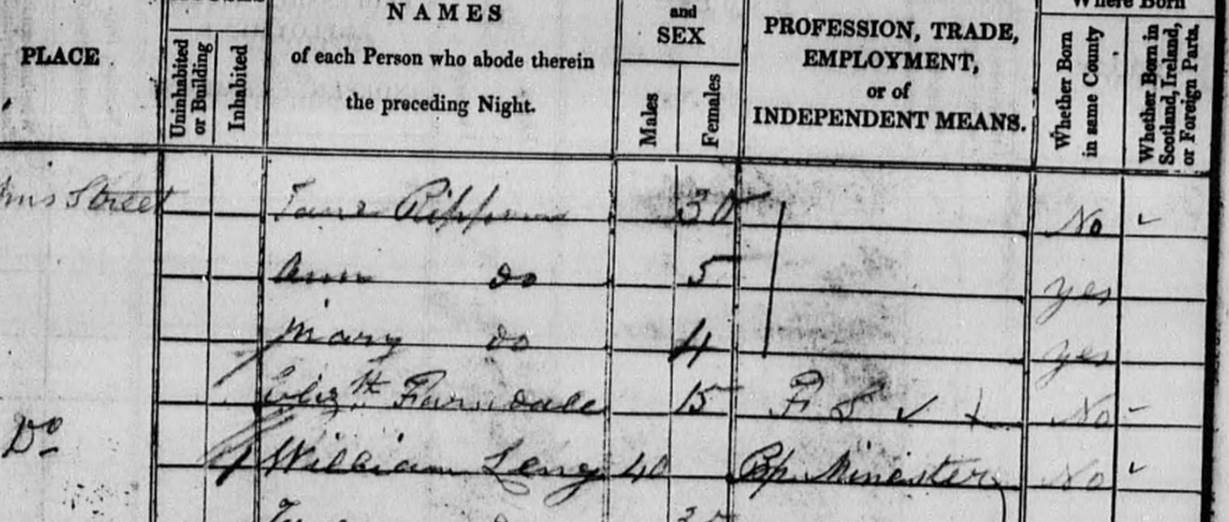 PLACE
Uninhabited or Building
Inhabited
NAMES
of each Person who abode therein
the preceding Night.
and
SEX
Males
Females
PROFESSION, TRADE,
EMPLOYMENT,
or of
INDEPENDENT MEANS.
Where Born
Whether Born in same County
Whether Born in Scotland, Ireland, or Foreign Parts.
Street Jane Rippon 30 No
Ann do 5 yes
Mary do 4 yes
Elizth Farndale 15 F S No
Do 1 William Leng 40 Bp. Minister No